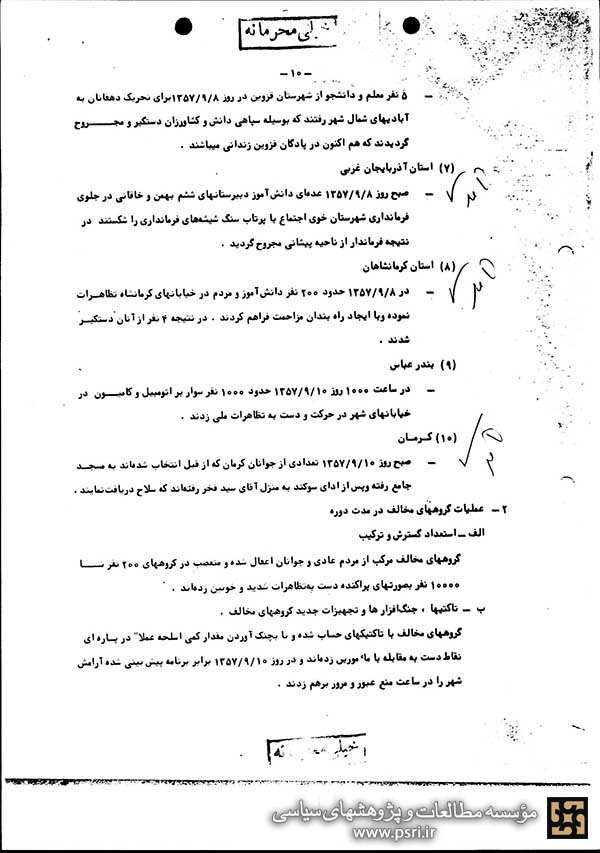 خیلی محرمانه
-۱۰-
- ۵ نفر معلم و دانشجو از شهرستان قزوین در روز ۱۳۵۷/۹/۸ برای تحریک دهقانان به
آبادیهای شمال شهر رفتند که بوسیله سپاهی دانش و کشاورزان دستگیر و مجروح
گردیدند که هم اکنون در پادگان قزوین زندانی میباشند .
(۷) استان آذربایجان غربی
- صبح روز ۱۳۵۷/۹/۸ عده‌ای دانش‌آموز دبیرستانهای ششم بهمن و خاقانی در جلوی
فرمانداری شهرستان خوی اجتماع با پرتاب سنگ شیشه‌های فرمانداری را شکستند در
نتیجه فرماندار از ناحیه پیشانی مجروح گردید .
(۸) استان کرمانشاهان
- در ۱۳۵۷/۹/۸ حدود ۲۰۰ نفر دانش‌آموز و مردم در خیابانهای کرمانشاه تظاهرات
نموده وبا ایجاد راه بندان مزاحمت فراهم کردند . در نتیجه ۴ نفر از آنان دستگیر
شدند .
(۹) بندر عباس
- در ساعت ۱۰۰۰ روز ۱۳۵۷/۹/۱۰ حدود ۱۰۰۰ نفر سوار بر اتومبیل و کامیون در
خیابانهای شهر در حرکت و دست به تظاهرات ملی زدند .
(۱۰) کرمان
- صبح روز ۱۳۵۷/۹/۱۰ تعدادی از جوانان کرمان که از قبل انتخاب شده‌اند به مسجد
جامع رفته وپس از ادای سوگند به منزل آقای سید فخر رفته‌اند که سلاح دریافت‌نمایند .
۲- عملیات گروههای مخالف در مدت دوره
الف - استعداد گسترش و ترکیب
گروههای مخالف مرکب از مردم عادی و جوانان اغفال شده و متعصب در گروههای ۲۰۰ نفر تا
۱۰۰۰۰ نفر بصورتهای پراکنده دست به‌تظاهرات شدید و خونین زده‌اند .
ب - تاکتیها ، جنگ‌افزار ها و تجهیزات جدید گروههای مخالف .
گروههای مخالف با تاکتیکهای حساب شده و با بچنگ آوردن مقدار کمی اسلحه عملا" در پاره ای
نقاط دست به مقابله با مأمورین زده‌اند و در روز ۱۳۵۷/۹/۱۰ برابر برنامه پیش بینی شده آرامش
شهر را در ساعت منع عبور و مرور برهم زدند .
خیلی محرمانه
مؤسسه مطالعات و پژوهشهای سیاسی
www.psri.ir